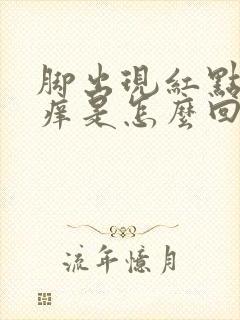 脚出現紅點
癢是怎麼回
流年憶月